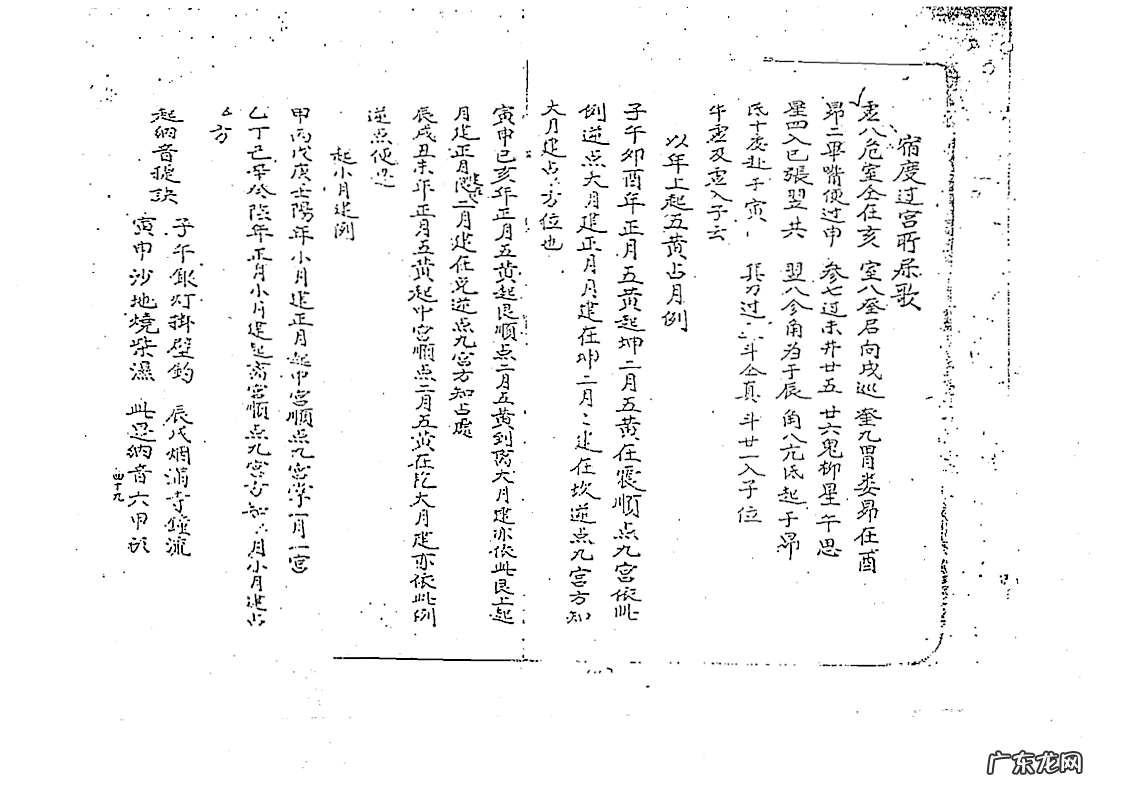 宿度过宫所属歌
虚八危室仝在亥 室八壁启向戌巡 奎九胃娄昴在酉
昴二毕嘴便过申 参七过未井廿五 廿六鬼柳星午思
星四入巳張翌共 翌八今角为于辰 角八亢氐起于昴
氐十度赴于寅 箕刀过 斗仝真 斗廿一入子位
牛虚及虚入子云
以年上起五黄占月例
子午卯酉年正月五黄起坤二月五黄在震顺点九宫依此
例逆点大月建正月月建在坤二月〻建在坎逆点九宫方知
大月建占方位也
寅申巳亥年正月五黄起艮顺点二月五黄到离大月建亦依此艮上起
月建正月艮二月建在兑逆点九宫方知占處
辰戌丑未年正月五黄起中宫顺点二月五黄在乾大月建亦依此例
逆点便是
起小月建例
甲丙戊庚壬陽年小月建正月起中宫顺点九宫掌一月一宫
乙丁己辛癸陰年正月小月建起离宫顺点九宫方知〻月小月建占
方
起纳音捷诀
子午銀灯掛壁鈎 辰戌烟满寺鐘流
寅申沙地燒柴濕 此是纳音六甲於
四十九
广东龙网